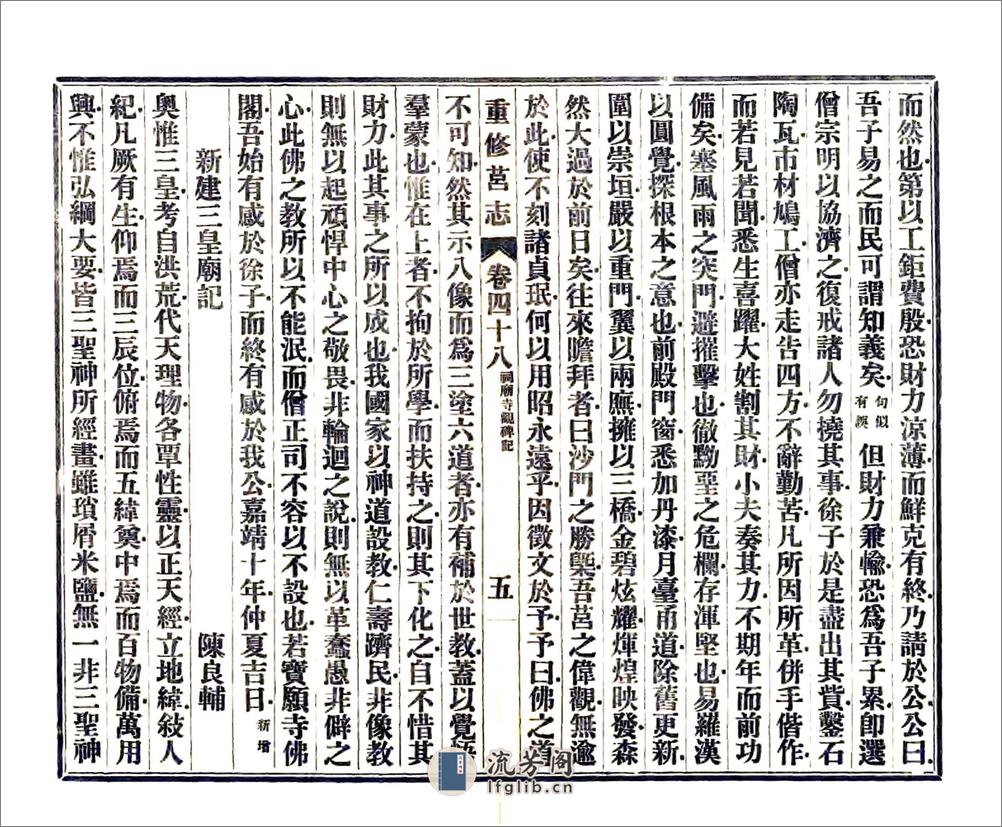 而然也第以工鉅費殷恐財力涼薄而鮮克有終乃請於公公曰
吾子易之而民可謂知義矣句似有誤但財力兼輸恐為吾子累卽選
僧宗明以協濟之復戒諸人勿撓其事徐子於是盡出其貲鑿石
陶瓦市材鳩工僧亦走告四方不辭勤苦凡所因所革併手偕作
而若見若聞悉生喜躍大姓割其財小夫奏其力不期年而前功
備矣塞風雨之突門避摧擊也徹黝堊之危欄存渾堅也易羅漢
以圓覺探根本之意也前殿門窗悉加丹漆月臺甬道除舊更新
圍以崇垣嚴以重門翼以兩廡擁以三橋金碧炫耀煇煌映發森
然大過於前日矣往來瞻拜者曰沙門之勝槩吾莒之偉觀無逾
於此使不刻諸貞珉何以用昭永遠乎因徵文於予予曰佛之道
不可知然其示八像而為三塗六道者亦有補於世教蓋以覺悟
羣蒙也惟在上者不拘於所學而扶持之則其下化之自不惜其
財力此其事之所以成也我國家以神道設教仁壽躋民非像教
則無以起頑悍中心之敬畏非輪迴之說則無以革蠢愚非僻之
心此佛之教所以不能泯而僧正司不容以不設也若寶願寺佛
閣吾始有感於徐子而終有感於我公嘉靖十年仲夏吉日新增
新建三皇廟記 陳良輔
奧惟三皇考自洪荒代天理物各覃性靈以正天經立地緯敍人
紀凡厥有生仰焉而三辰位俯焉而五緯奠中焉而百物備萬用
興不惟弘綱大要皆三聖神所經畫雖瑣屑米鹽無一非三聖神
重修莒志 卷四十八 祠廟寺觀碑記 五
流芳阁
lfglib.cn